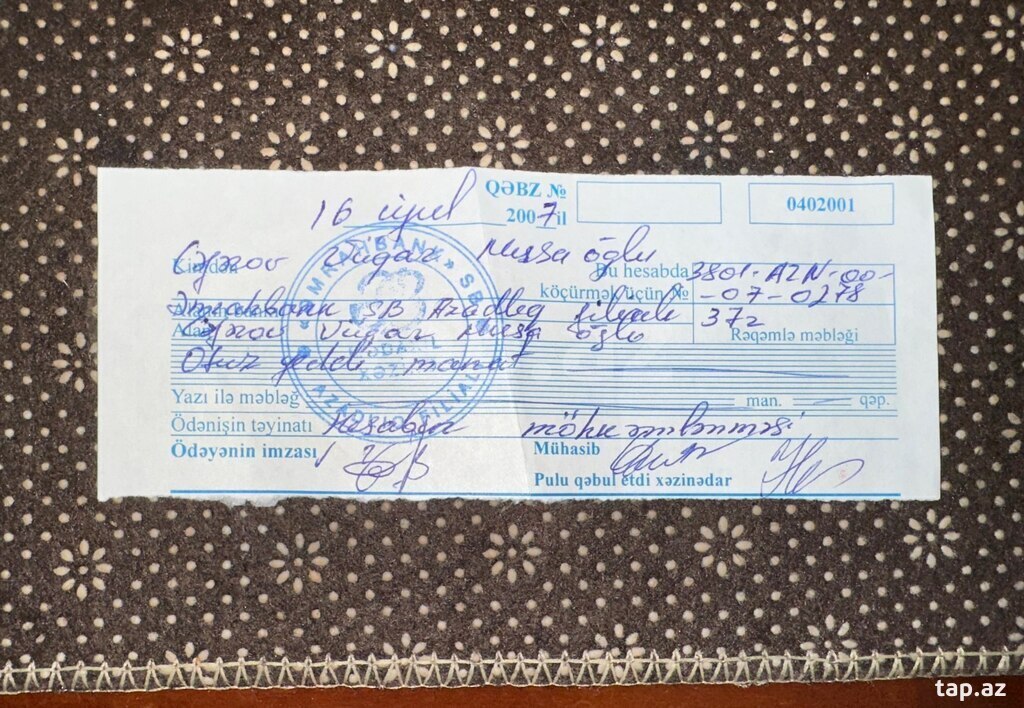 QƏBZ №
0402001
16 iyul 2007 il
Vüqar Mussa oğlu
Bu hesabda
köçürmək üçün №
3801-AZN-00-
-07-0278
Əmrahbank SB Azadlıq filialı
Vüqar Mussa oğlu
Rəqəmlə məbləği
Otuz yeddi manat
Yazı ilə məbləğ man. qəp.
Ödənişin təyinatı Hesabın möhkəmlənməsi
Ödəyənin imzası
Mühasib
Pulu qəbul etdi xəzinədar
tap.az